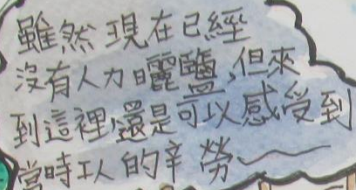 雖然現在已經
沒有人力曬鹽,但來
到這裡,還是可以感受到
當時工人的辛勞~